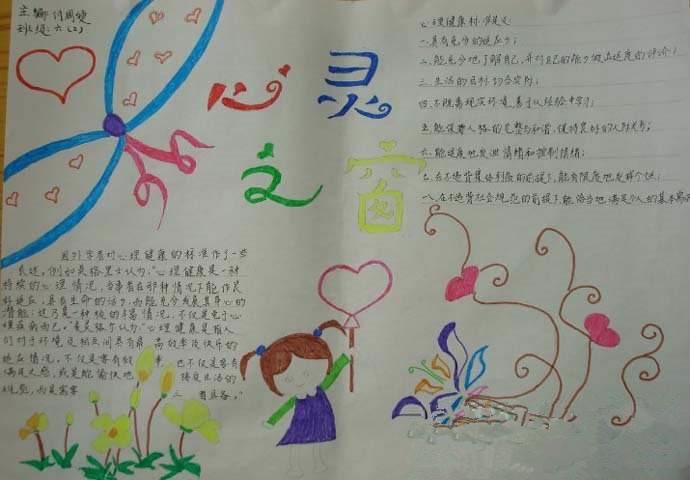 主编 付周婕
班级：六（2）
心灵
之窗
心理健康标准是义
一.具有充分的适应力；
二.能充分地了解自己，并对自己的能力做出适度的评价；
三.生活的目标切合实际；
四.不脱离现实环境，善于从经验中学习；
五.能保持人格的完整与和谐，保持良好的人际关系；
六.能适度地发泄情绪和控制情绪；
七.在不违背集体利益的前提下，能有限度地发挥个性；
八.在不违背社会规范的前提下，能恰当地满足个人的基本需求
国外学者对心理健康的标准作了一些
表述。例如英格里士认为："心理健康是一种
持续的心理情况，当事者在那种情况下能作良
好适应，具有生命的活力，而能充分发展其身心的
潜能；这乃是一种积极的丰富情况，不仅是免于心
理疾病而已。"麦灵格尔认为："心理健康是指人
们对于环境及相互间具有最高效率及快乐的
适应情况。不仅是要有效率，也不仅是要有
满足之感，或是能愉快地接受生活的
规范，而是需要三者具备。"